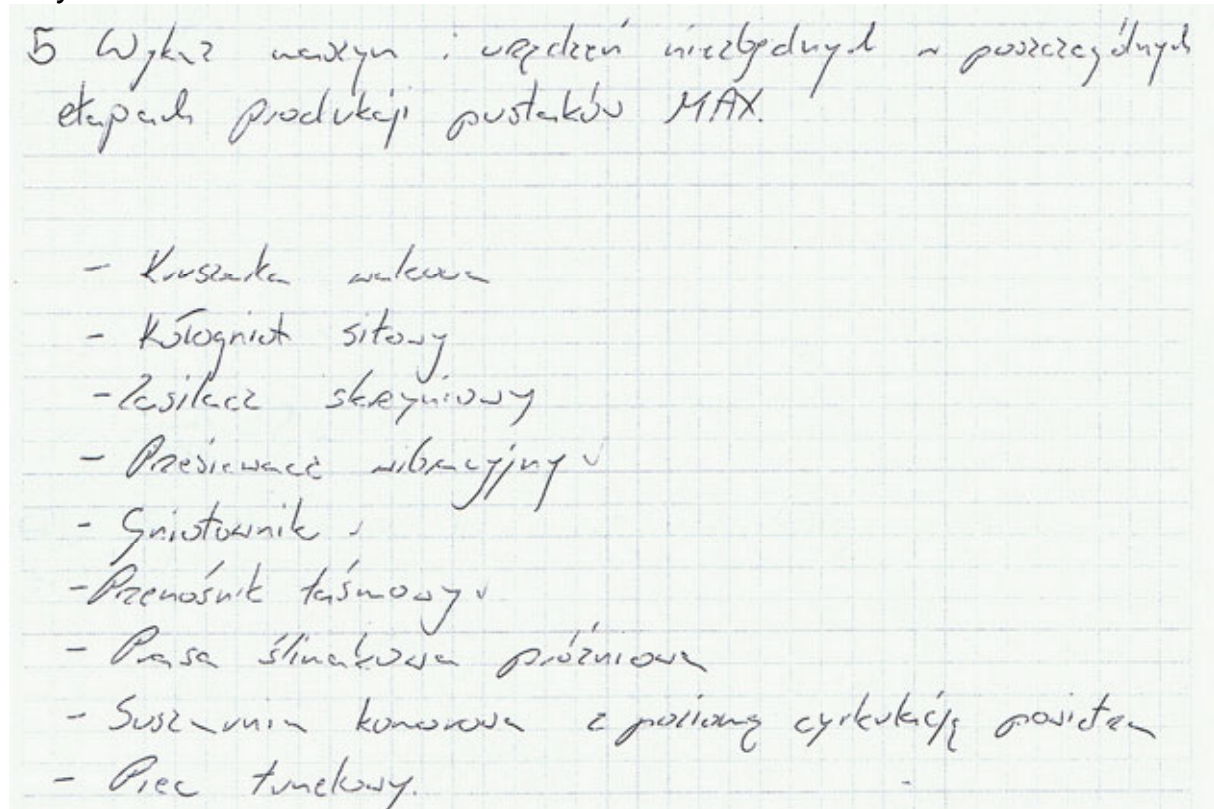 5 Wykaz maszyn i urządzeń niezbędnych w poszczególnych
etapach produkcji pustaków MAX.
- Kruszarka walcowa
- Kołogniot sitowy
- Zasilacz skrzyniowy
- Przesiewacz wibracyjny
- Gniotownik
- Przenośnik taśmowy
- Prasa ślimakowa próżniowa
- Suszarnia komorowa z poziomą cyrkulacją powietrza
- Piec tunelowy.